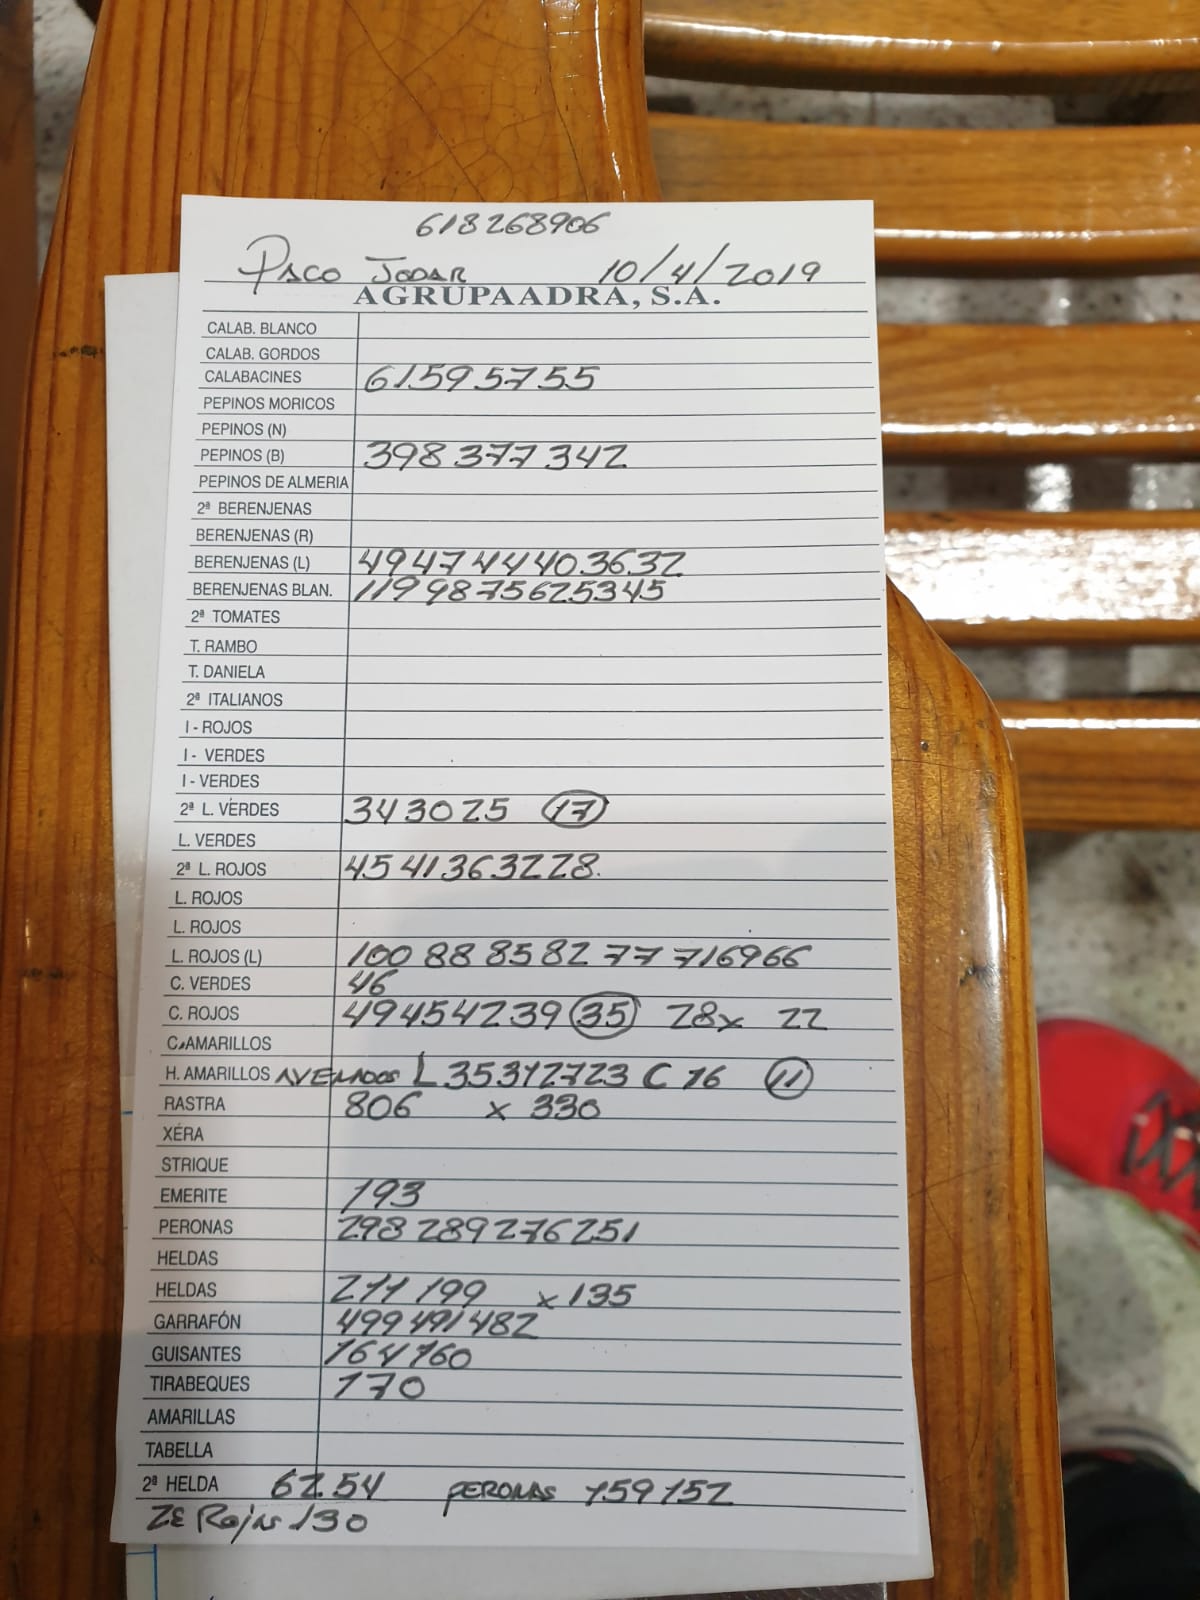 618268906
PACO JODAR 10/4/2019
AGRUPAADRA, S.A.
CALAB. BLANCO
CALAB. GORDOS
CALABACINES 61595755
PEPINOS MORICOS
PEPINOS (N)
PEPINOS (B) 398 377 342
PEPINOS DE ALMERIA
2ª BERENJENAS
BERENJENAS (R)
BERENJENAS (L) 494744403632
BERENJENAS BLAN. 1199875625345
2ª TOMATES
T. RAMBO
T. DANIELA
2ª ITALIANOS
I - ROJOS
I - VERDES
I - VERDES
2ª L. VERDES 343025 17
L. VERDES
2ª L. ROJOS 4541363228
L. ROJOS
L. ROJOS
L. ROJOS (L) 100 88 85 82 77 716966
C. VERDES 46
C. ROJOS 494542 39 35 28x 22
C. AMARILLOS
H. AMARILLOS L 35312723 C 16 11
RASTRA 806 x 330
XÉRA
STRIQUE
EMERITE 193
PERONAS 298 289 276 251
HELDAS
HELDAS 211 199 x 135
GARRAFÓN 499 491 482
GUISANTES 164 160
TIRABEQUES 170
AMARILLAS
TABELLA
2ª HELDA 62.54 PERONAS 159 152
130